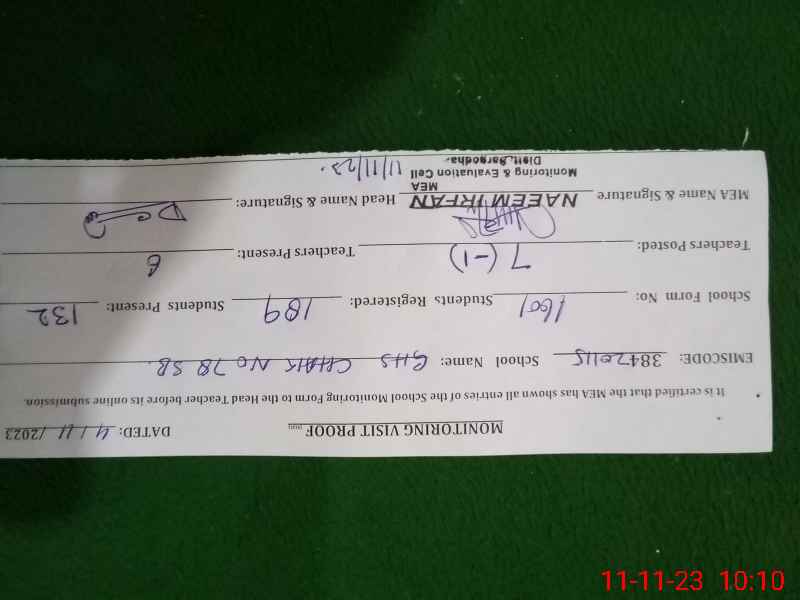 MONITORING VISIT PROOF DATED: 11/11/2023
It is certified that the MEA has shown all entries of the School Monitoring Form to the Head Teacher before its online submission.
EMISCODE: 38420115 School Name: GHS CHAK NO 78 SB.
School Form No: 1601 Students Registered: 189 Students Present: 132
Teachers Posted: 7(-1) Teachers Present: 6
MEA Name & Signature NAEEM IRFAN Head Name & Signature:
MEA
Monitoring & Evaluation Cell 11/11/23.
Distt. Sargodha.
11-11-23 10:10